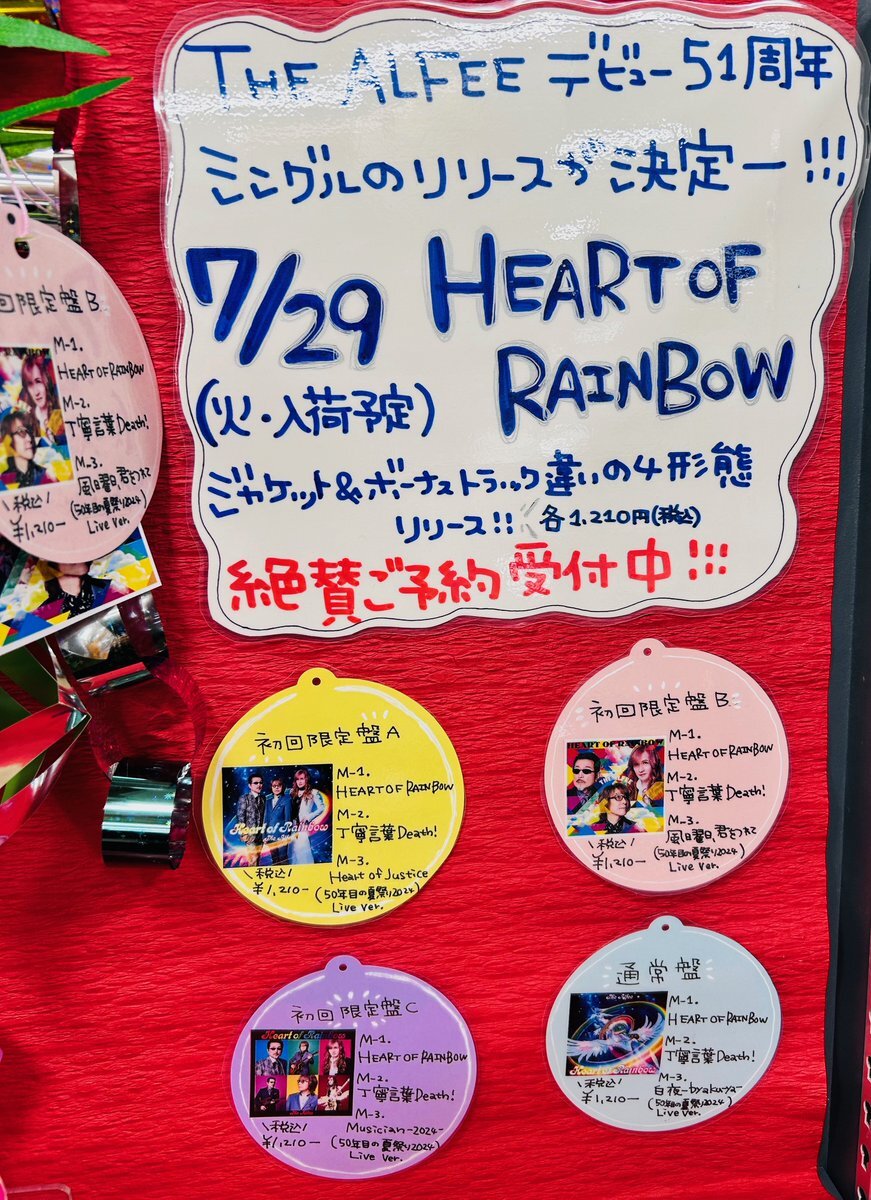 THE ALFEE デビュー51周年
シングルのリリースが決定ー!!!
7/29 HEART OF
RAINBOW
(火・入荷予定)
ジャケット&ボーナストラック違いの4形態
リリース!! 各1,210円(税込)
絶賛ご予約受付中!!!
回限定盤B
M-1.
HEART OF RAINBOW
M-2.
丁寧言葉Death!
M-3.
風曜日、君をつれて
(50年目の夏祭り2024)
Live Ver.
\税込/
¥1,210-
初回限定盤A
M-1.
HEART OF RAINBOW
M-2.
丁寧言葉Death!
M-3.
Heart of Justice
(50年目の夏祭り2024)
Live Ver.
\税込/
¥1,210-
Heart of Rainbow
The Alfee
初回限定盤B
HEART OF RAINBOW
M-1.
HEART OF RAINBOW
M-2.
丁寧言葉Death!
M-3.
風曜日、君をつれて
(50年目の夏祭り2024)
Live Ver.
\税込/
¥1,210-
初回限定盤C
Heart of Rainbow
M-1.
HEART OF RAINBOW
M-2.
丁寧言葉Death!
M-3.
Musician-2024-
(50年目の夏祭り2024)
Live Ver.
\税込/
¥1,210-
通常盤
The Alfee
Heart of Rainbow
M-1.
HEART OF RAINBOW
M-2.
丁寧言葉Death!
M-3.
白夜-byakuya-
(50年目の夏祭り2024)
Live Ver.
\税込/
¥1,210-